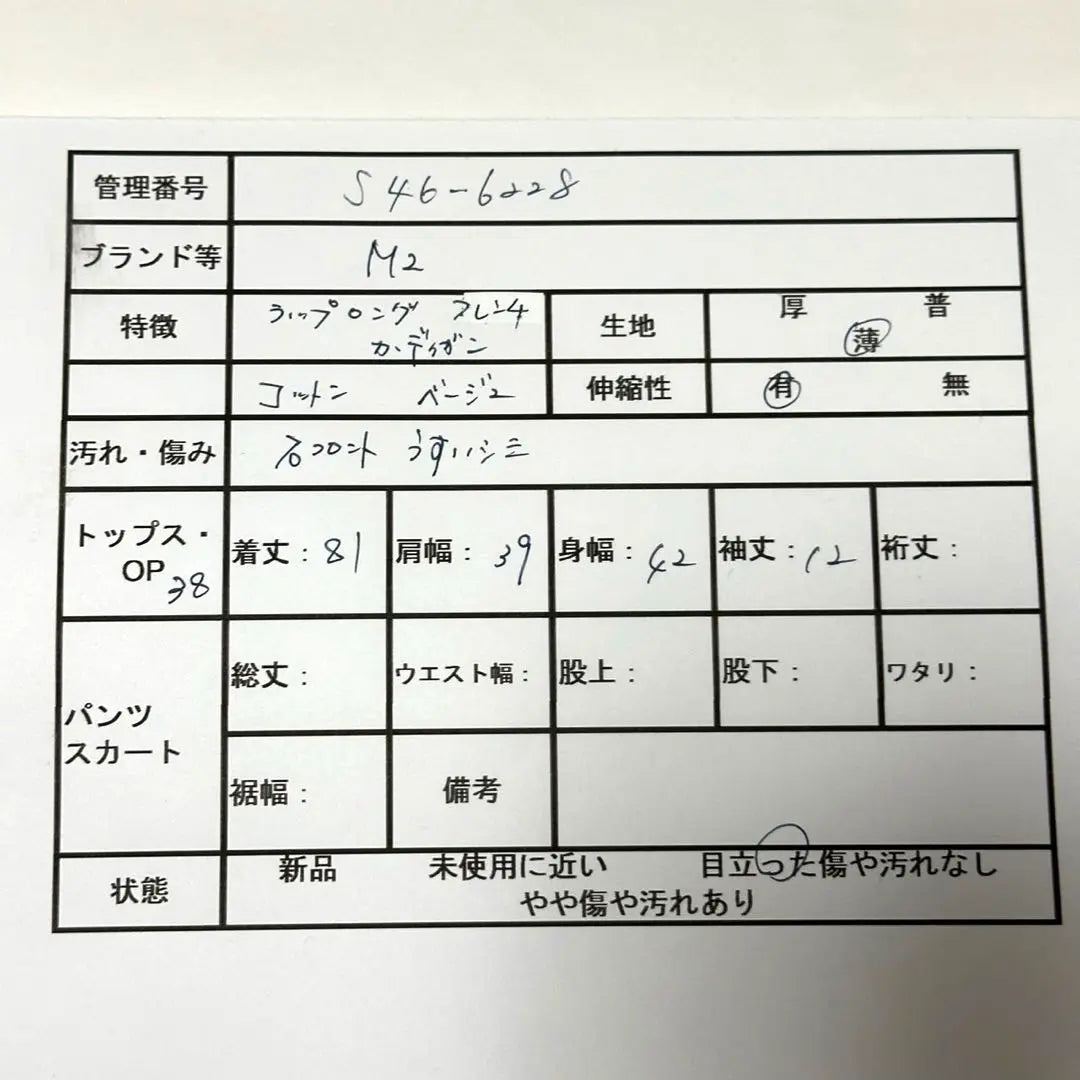 管理番号 S46-6228
ブランド等 M2
特徴 ラップロング フレンチ 生地 厚 普
カーディガン 薄
コットン ベージュ 伸縮性 有 無
汚れ・傷み フロント うすいシミ
トップス・ 着丈：81 肩幅：39 身幅：42 袖丈：12 裄丈：
OP 38
総丈： ウエスト幅： 股上： 股下： ワタリ：
パンツ
スカート
裾幅： 備考
状態 新品 未使用に近い 目立った傷や汚れなし
やや傷や汚れあり